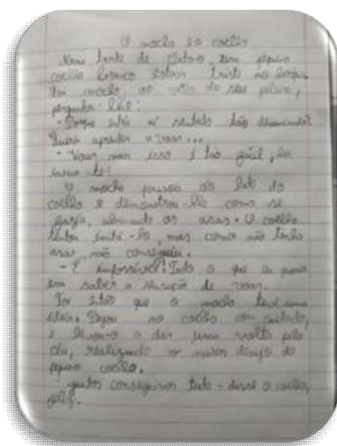 O mocho e o coelho
Numa tarde de Outono, um pequeno
coelho branco estava triste no bosque.
Um mocho, ao vê-lo do seu poleiro,
perguntou-lhe:
- Porque estás sentado tão desanimado?
- Queria aprender a voar...
- Voar mas isso é tão fácil, eu
ensino-te!
O mocho pousou ao lado do
coelho e demonstrou-lhe como se
fazia, abanando as asas. O coelho
tentou imitá-lo, mas como não tinha
asas, não conseguiu.
- É impossível! Tudo o que eu queria
era saber a sensação de voar.
Foi então que o mocho teve uma
ideia. Pegou no coelho com cuidado,
e levou-o a dar uma volta pelo
céu, realizando o maior desejo do
pequeno coelho.
- Juntos conseguimos tudo - disse o coelho,
feliz.